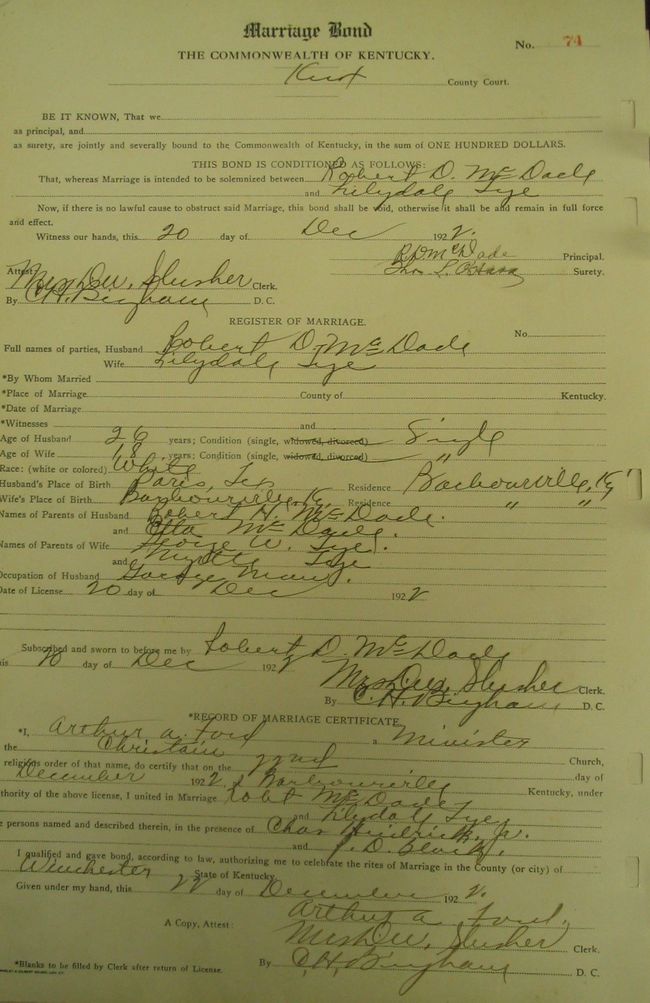 Marriage Bond
No. 74
THE COMMONWEALTH OF KENTUCKY.
Knox County Court.
BE IT KNOWN, That we
as principal, and
as surety, are jointly and severally bound to the Commonwealth of Kentucky, in the sum of ONE HUNDRED DOLLARS.
THIS BOND IS CONDITIONED AS FOLLOWS:
That, whereas Marriage is intended to be solemnized between Robert D. McDade
and Lilydale Tye
Now, if there is no lawful cause to obstruct said Marriage, this bond shall be void, otherwise it shall be and remain in full force
and effect.
Witness our hands, this 20 day of Dec 1922.
R D McDade Principal.
Thos. L. Surety.
Attest Mrs D W. Slusher Clerk.
By C H. Bingham D. C.
REGISTER OF MARRIAGE.
No.
Full names of parties, Husband Robert D. McDade
Wife Lilydale Tye
*By Whom Married
*Place of Marriage County of Kentucky.
*Date of Marriage
*Witnesses and
Age of Husband 26 years; Condition (single, widowed, divorced) Single
Age of Wife 18 years; Condition (single, widowed, divorced) "
Race: (white or colored). White
Husband's Place of Birth Paris, Residence Barbourville, Ky
Wife's Place of Birth Barbourville, Ky. Residence " "
Names of Parents of Husband Robert H. McDade.
and Etta McDade.
Names of Parents of Wife George W. Tye.
and Myrtle Tye
Occupation of Husband Garage Man.
Date of License 20 day of Dec 1922
Subscribed and sworn to before me by Robert D. McDade
his 20 day of Dec 1922
Mrs D W. Slusher Clerk.
By C. H. Bingham D. C.
*RECORD OF MARRIAGE CERTIFICATE.
*I, Arthur A. Ford a Minister
the Christain Church,
religious order of that name, do certify that on the 22nd day of
December 1922, Barbourville Kentucky, under
thority of the above license, I united in Marriage Robt McDade
and Lilydale Tye
e persons named and described therein, in the presence of Chas Jr.
and D. Black.
I qualified and gave bond, according to law, authorizing me to celebrate the rites of Marriage in the County (or city) of
Winchester State of Kentucky.
Given under my hand, this 22 day of December 1922.
Arthur A. Ford.
A Copy, Attest: Mrs D W. Slusher Clerk.
*Blanks to be filled by Clerk after return of License. By C. H. Bingham D. C.